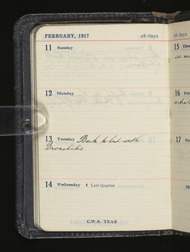 FEBRUARY, 1917
28 days
11 Sunday
12 Monday
13 Tuesday Back to bed with
Bronchitis
14 Wednesday Last Quarter
C.W.S. TEAS
28 days
15
16
17